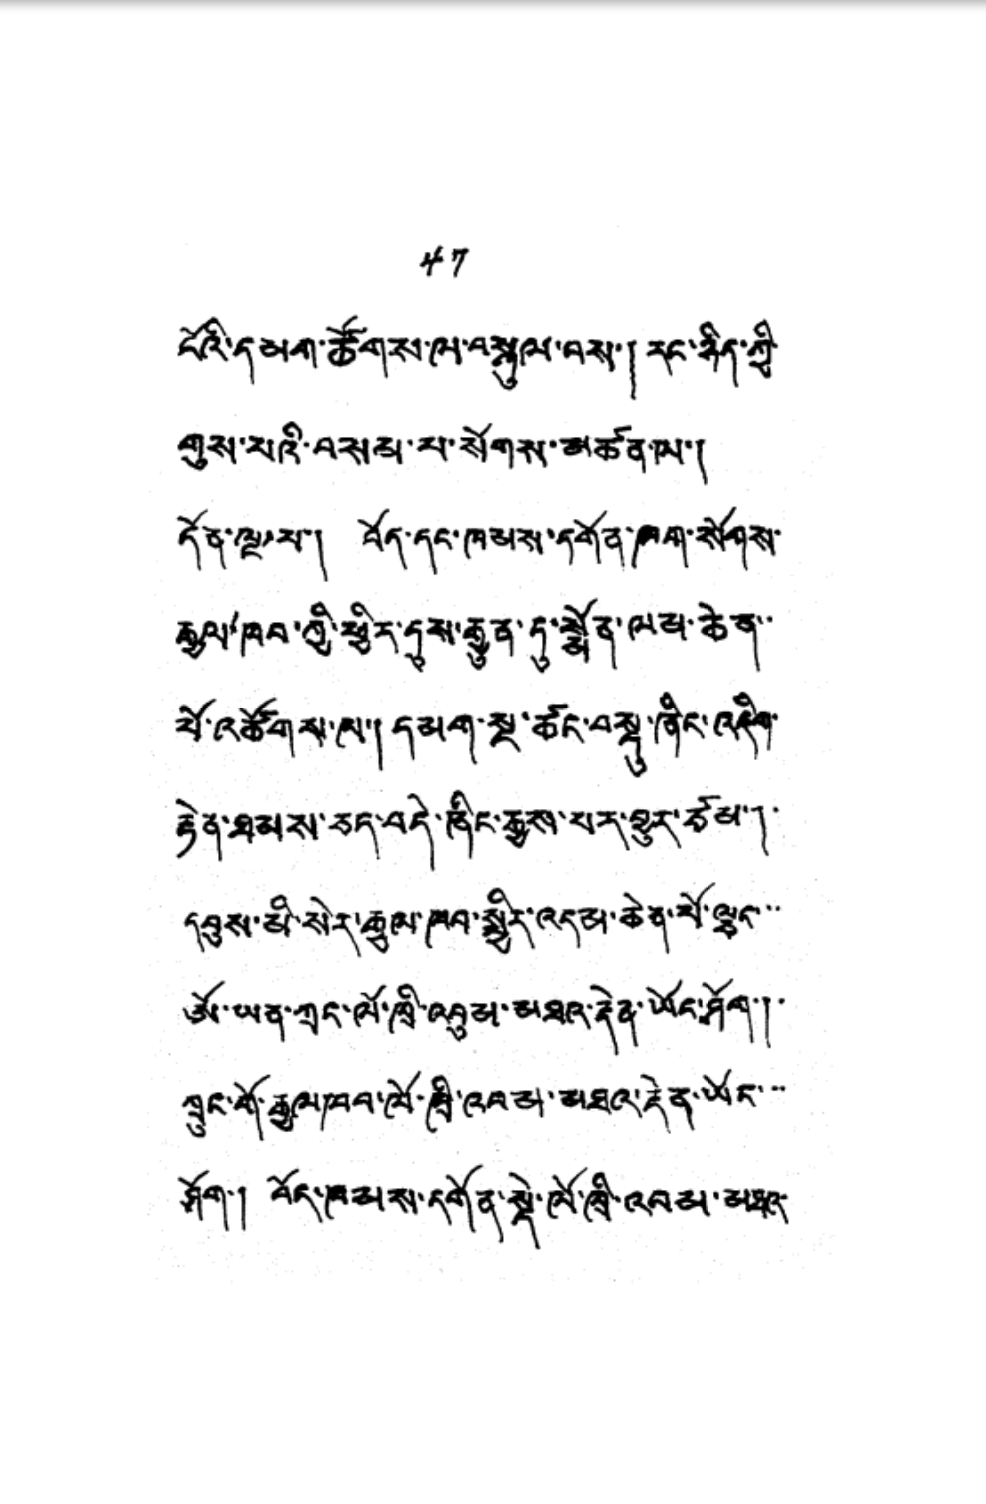 47
ངོའི་དམག་ཚོགས་ལ་བསྐུལ་བས་། རང་ཉིད་ཀྱི
གུས་པའི་བསམ་པ་སོགས་མཚོན་ལ་།
དོན་ལྔ་པ་། བོད་དང་ཁམས་དགོན་ཁག་སོགས་
རྒྱལ་ཁབ་ཀྱི་ཕྱིར་དུས་རྒྱུན་དུ་སྨོན་ལམ་ཆེན་
པོ་འཚོགས་ལ་། དམག་སྔ་ཚང་བསྡུ་ཞིང་འཇིག
རྟེན་ཐམས་ཅད་བདེ་ཞིང་རྒྱས་པར་བྱུར་ཙམ་།
དབུས་མི་སེར་རྒྱལ་ཁབ་སྤྱིར་འདམ་ཆེན་པོ་ལྷང་
ཨོ་ཡན་ཀྲང་ལོ་ཁྲི་འབུམ་མཐའ་རྟེན་ཡོང་ཤོག་།
ཀྲུང་གོ་རྒྱལ་ཁབ་ལོ་ཁྲི་འབམ་མཐའ་རྟེན་ཡོང་
ཤོག་། བོད་ཁམས་དགོན་སྡེ་ལོ་ཁྲི་འབམ་མཐའ